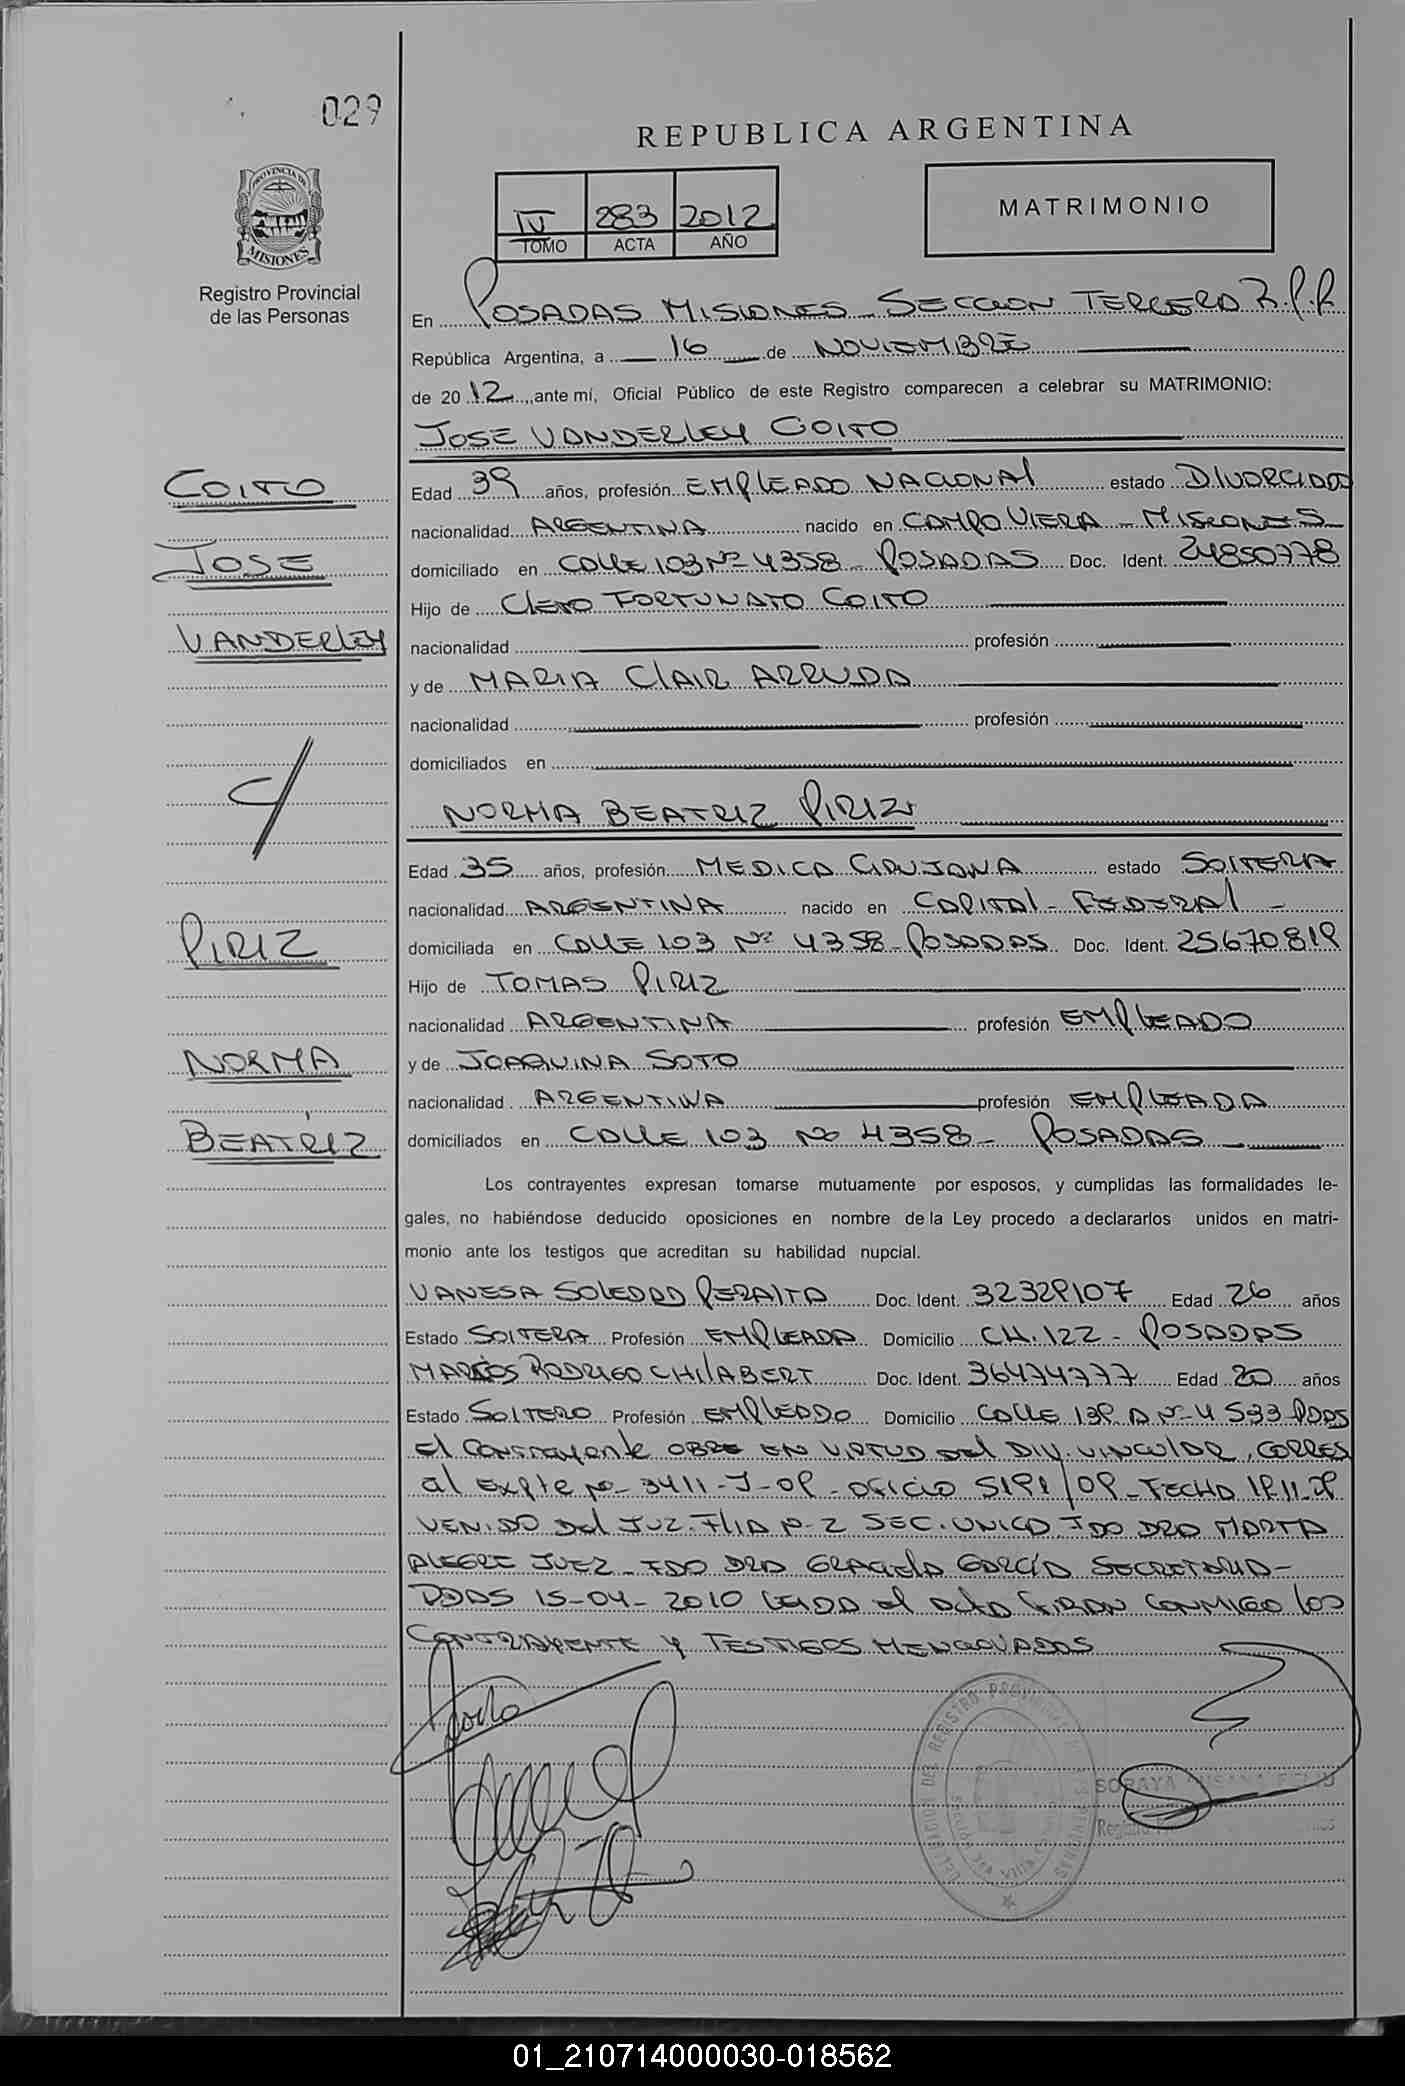 029
PROVINCIA DE
MISIONES
Registro Provincial
de las Personas
REPUBLICA ARGENTINA
IV 283 2012
TOMO ACTA AÑO
MATRIMONIO
En POSADAS MISIONES SECCION TERCERA R.P.P
República Argentina, a 16 de NOVIEMBRE
de 2012, ante mí, Oficial Público de este Registro comparecen a celebrar su MATRIMONIO:
JOSE VANDERLEY COITO
COITO
JOSE
VANDERLEY
Edad 39 años, profesión EMPLEADO NACIONAL estado DIVORCIADO
nacionalidad ARGENTINA nacido en CAMPO VIERA - MISIONES
domiciliado en CALLE 103 Nº 4358 - POSADAS Doc. Ident. 24850778
Hijo de CLETO FORTUNATO COITO
nacionalidad profesión
y de MARIA CLAIR ARRUDA
nacionalidad profesión
domiciliados en
C/
NORMA BEATRIZ PIRIZ
PIRIZ
NORMA
BEATRIZ
Edad 35 años, profesión MEDICA CIRUJANA estado SOLTERA
nacionalidad ARGENTINA nacido en CAPITAL - FEDERAL -
domiciliada en CALLE 103 Nº 4358 - POSADAS Doc. Ident. 25670819
Hijo de TOMAS PIRIZ
nacionalidad ARGENTINA profesión EMPLEADO
y de JOAQUINA SOTO
nacionalidad ARGENTINA profesión EMPLEADA
domiciliados en CALLE 103 Nº 4358 - POSADAS
Los contrayentes expresan tomarse mutuamente por esposos, y cumplidas las formalidades le-
gales, no habiéndose deducido oposiciones en nombre de la Ley procedo a declararlos unidos en matri-
monio ante los testigos que acreditan su habilidad nupcial.
VANESA SOLEDAD PERALTA Doc. Ident. 32329107 Edad 26 años
Estado SOLTERA Profesión EMPLEADA Domicilio CH. 122 - POSADAS
MARCOS RODRIGO CHILABERT Doc. Ident. 36474777 Edad 20 años
Estado SOLTERO Profesión EMPLEADO Domicilio CALLE 139 A Nº 4533 PDAS
El CONTRAYENTE OBRE EN VIRTUD DEL DIV. VINCULAR, CORRES
al EXPTE Nº 3411-J-09 - OFICIO 5191/09 - FECHA 19.11.09
VENIDO DEL JUZ. FLIA Nº 2 SEC. UNICA FDO DRA MARTA
ALEGRE JUEZ - FDO DRA GRACIELA GARCÍA SECRETARIA -
PDAS 15-04-2010 LEIDA el ACTA FIRAN CONMIGO LOS
CONTRAYENTE Y TESTIGOS MENCIONADOS
Coito
DELEGACION DEL REGISTRO PROVINCIAL
SORAYA SUSANA
01_210714000030-018562